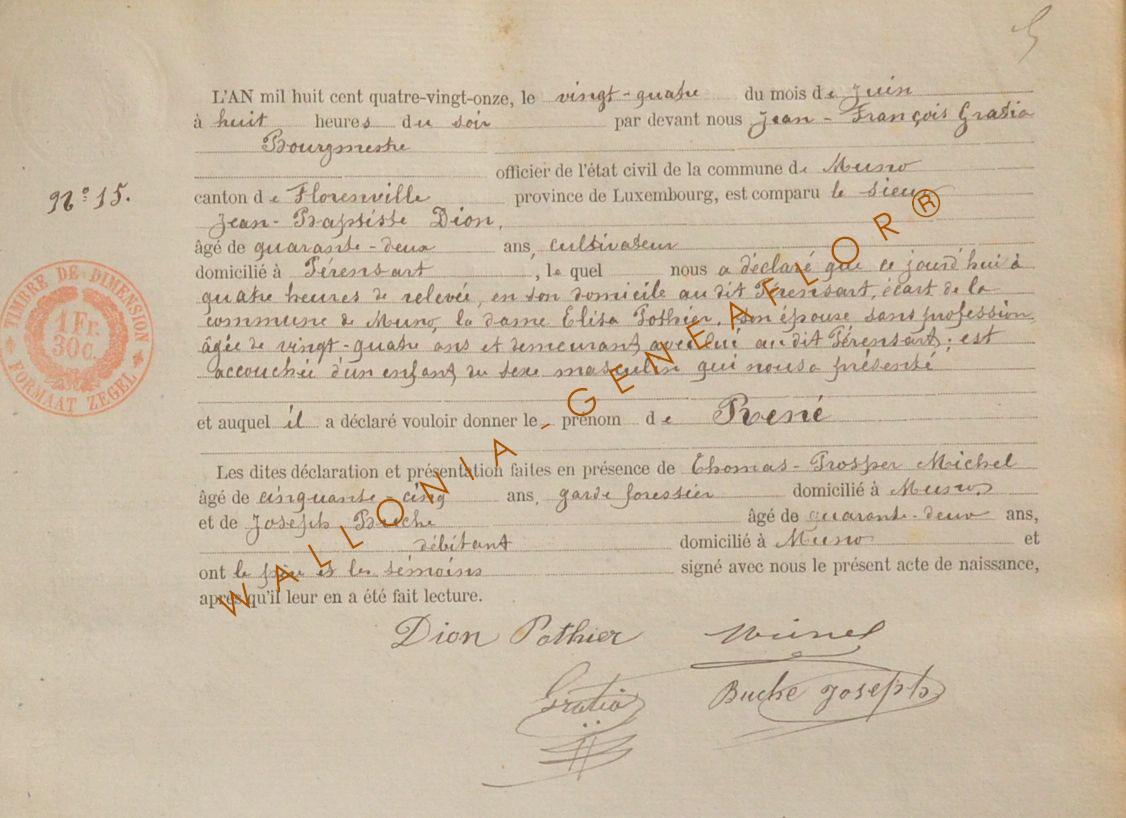 5
L'AN mil huit cent quatre-vingt-onze, le vingt-quatre du mois de Juin
à huit heures du soir par devant nous Jean-François Gratia
Bourgmestre
officier de l'état civil de la commune de Muno
N° 15.
canton de Florenville province de Luxembourg, est comparu le sieur
Jean-Baptiste Dion,
âgé de quarante-deux ans, cultivateur
domicilié à Térensart, lequel nous a déclaré que ce jourd'hui à
quatre heures de relevée, en son domicile au dit Térensart, écart de la
commune de Muno, la dame Elisa Pothier, son épouse sans profession,
âgée de vingt-quatre ans et demeurant avec lui au dit Térensart; est
accouchée d'un enfant du sexe masculin qui nous a présenté
et auquel il a déclaré vouloir donner le - prénom de René
Les dites déclaration et présentation faites en présence de Thomas-Prosper Michel
âgé de cinquante-cinq ans, garde forestier domicilié à Muno,
et de Joseph Buche âgé de quarante-deux ans,
débitant domicilié à Muno et
ont le père et les témoins signé avec nous le présent acte de naissance,
après qu'il leur en a été fait lecture.
Dion Pothier
Gratia Buche Joseph
TIMBRE DE DIMENSION
1 Fr.
30c.
FORMAAT ZEGEL
WALLONIA-GENEAFLOR®